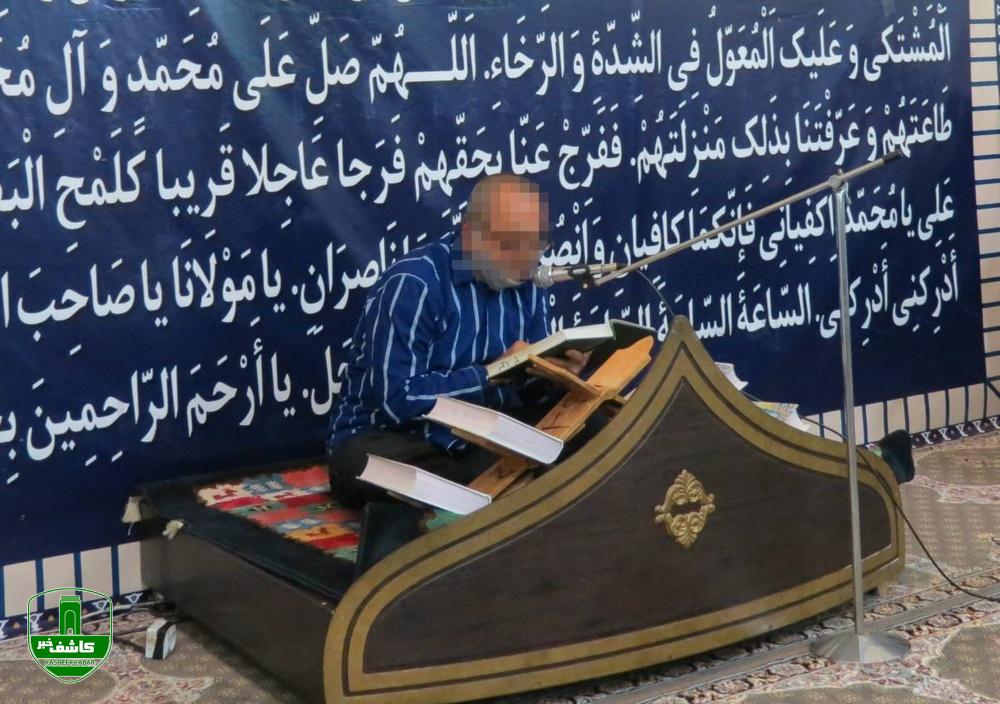 الْمُشْتَکی وَ عَلَیکَ الْمُعَوَّلُ فِی الشِّدَّةِ وَ الرَّخاءِ. اَللّـــهُمَّ صَلِّ عَلی مُحَمَّدٍ وَ آلِ
طَاعَتَهُمْ وَ عَرَّفْتَنَا بِذَلِکَ مَنْزِلَتَهُمْ. فَفَرِّجْ عَنَّا بِحَقِّهِمْ فَرَجا عَاجِلا قَرِیبا کَلَمْحِ
عَلِی یا مُحَمَّدُ اِکْفِیانِی فَإِنَّکُمَا کَافِیانِ وَ ناصِرَانِ. یا مَوْلانَا یا صَاحِبَ
أَدْرِکْنِی أَدْرِکْنِی. السَّاعَةَ السَّاعَةَ یا أَرْحَمَ الرَّاحِمِینَ
کاشف خبر
KASHEFKHABAR